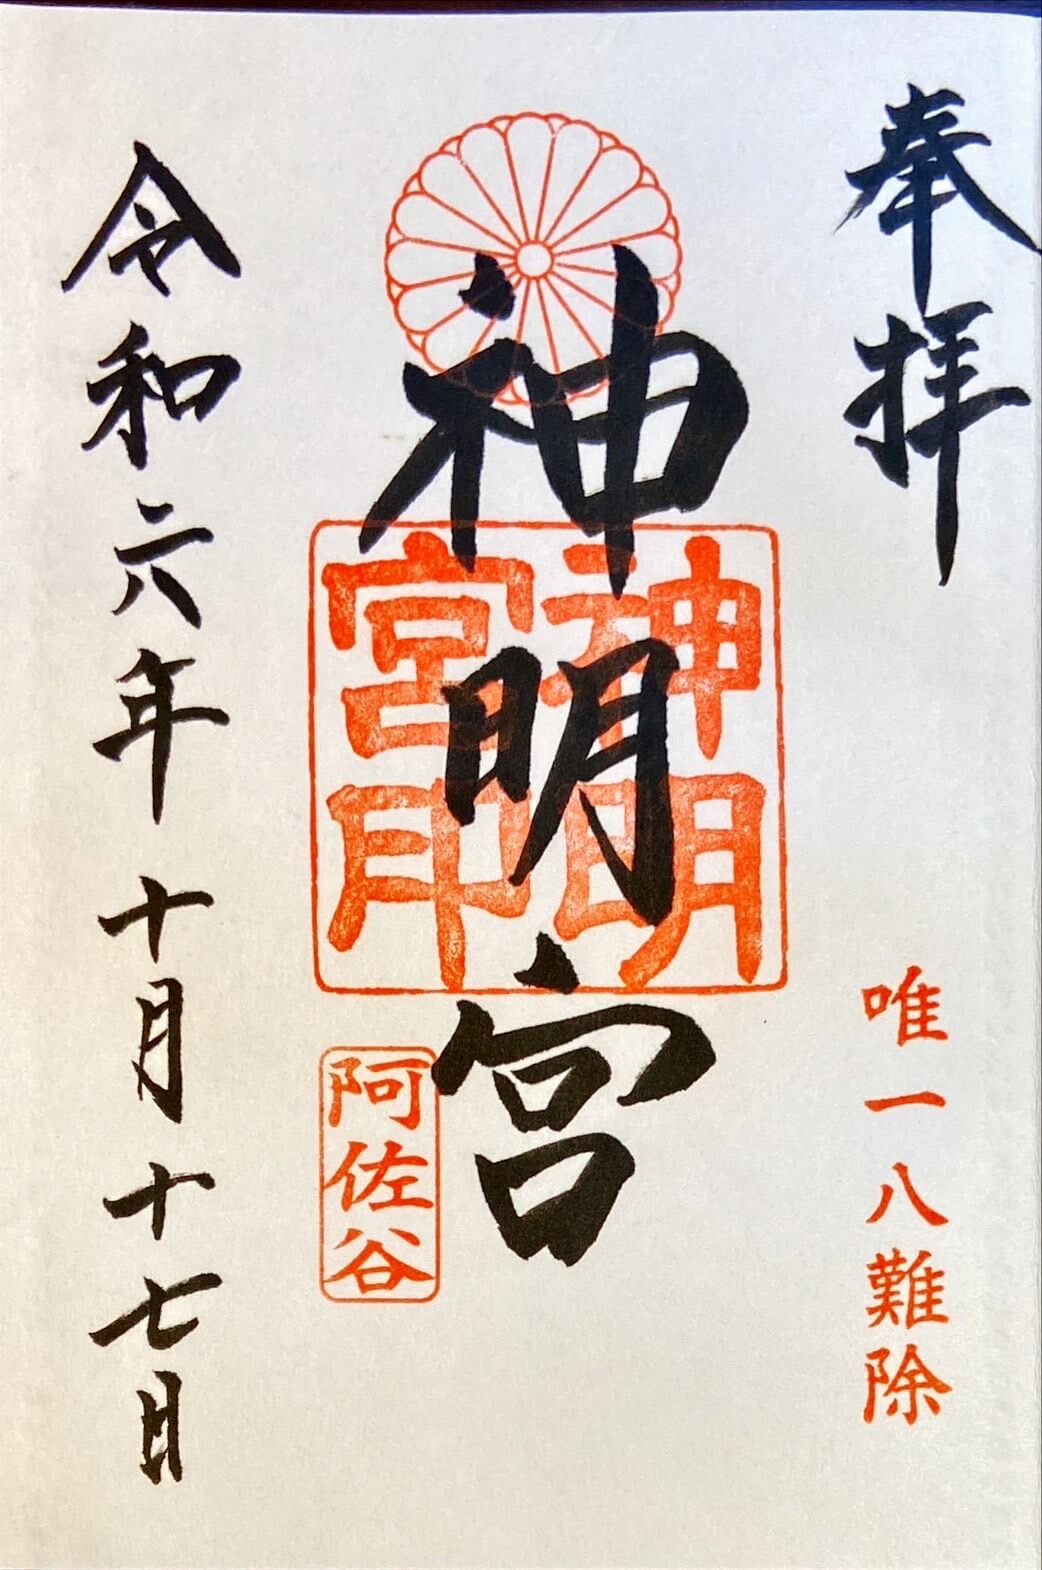 奉拝
唯一八難除
神明宮
神明
宮印
阿佐谷
令和六年十月十七日